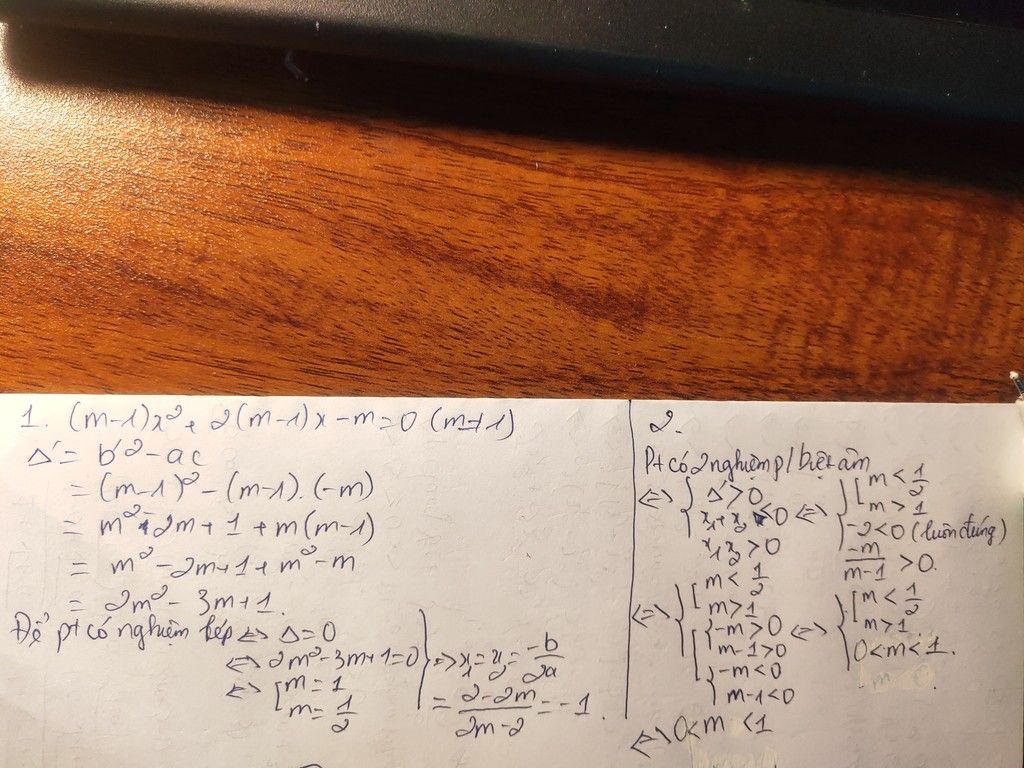 1. (m-1)x² + 2(m-1)x - m = 0 (m≠1)
Δ' = b'² - ac
= (m-1)² - (m-1).(-m)
= m² - 2m + 1 + m(m-1)
= m² - 2m + 1 + m² - m
= 2m² - 3m + 1.
Để pt có nghiệm kép ⇔ Δ = 0
⇔ 2m² - 3m + 1 = 0
⇔ [ m = 1
m = 1/2
} => x₁ = x₂ = -b/2a
= (2-2m)/(2m-2) = -1.
2.
Pt có 2 nghiệm p/biệt âm
⇔ { Δ' > 0
x₁ + x₂ < 0
x₁x₂ > 0
⇔ { [ m < 1/2
m > 1
-2 < 0 (luôn đúng)
-m/(m-1) > 0.
⇔ { [ m < 1/2
m > 1
[ { -m > 0
m-1 > 0
{ -m < 0
m-1 < 0
⇔ { [ m < 1/2
m > 1
0 < m < 1.
⇔ 0 < m < 1